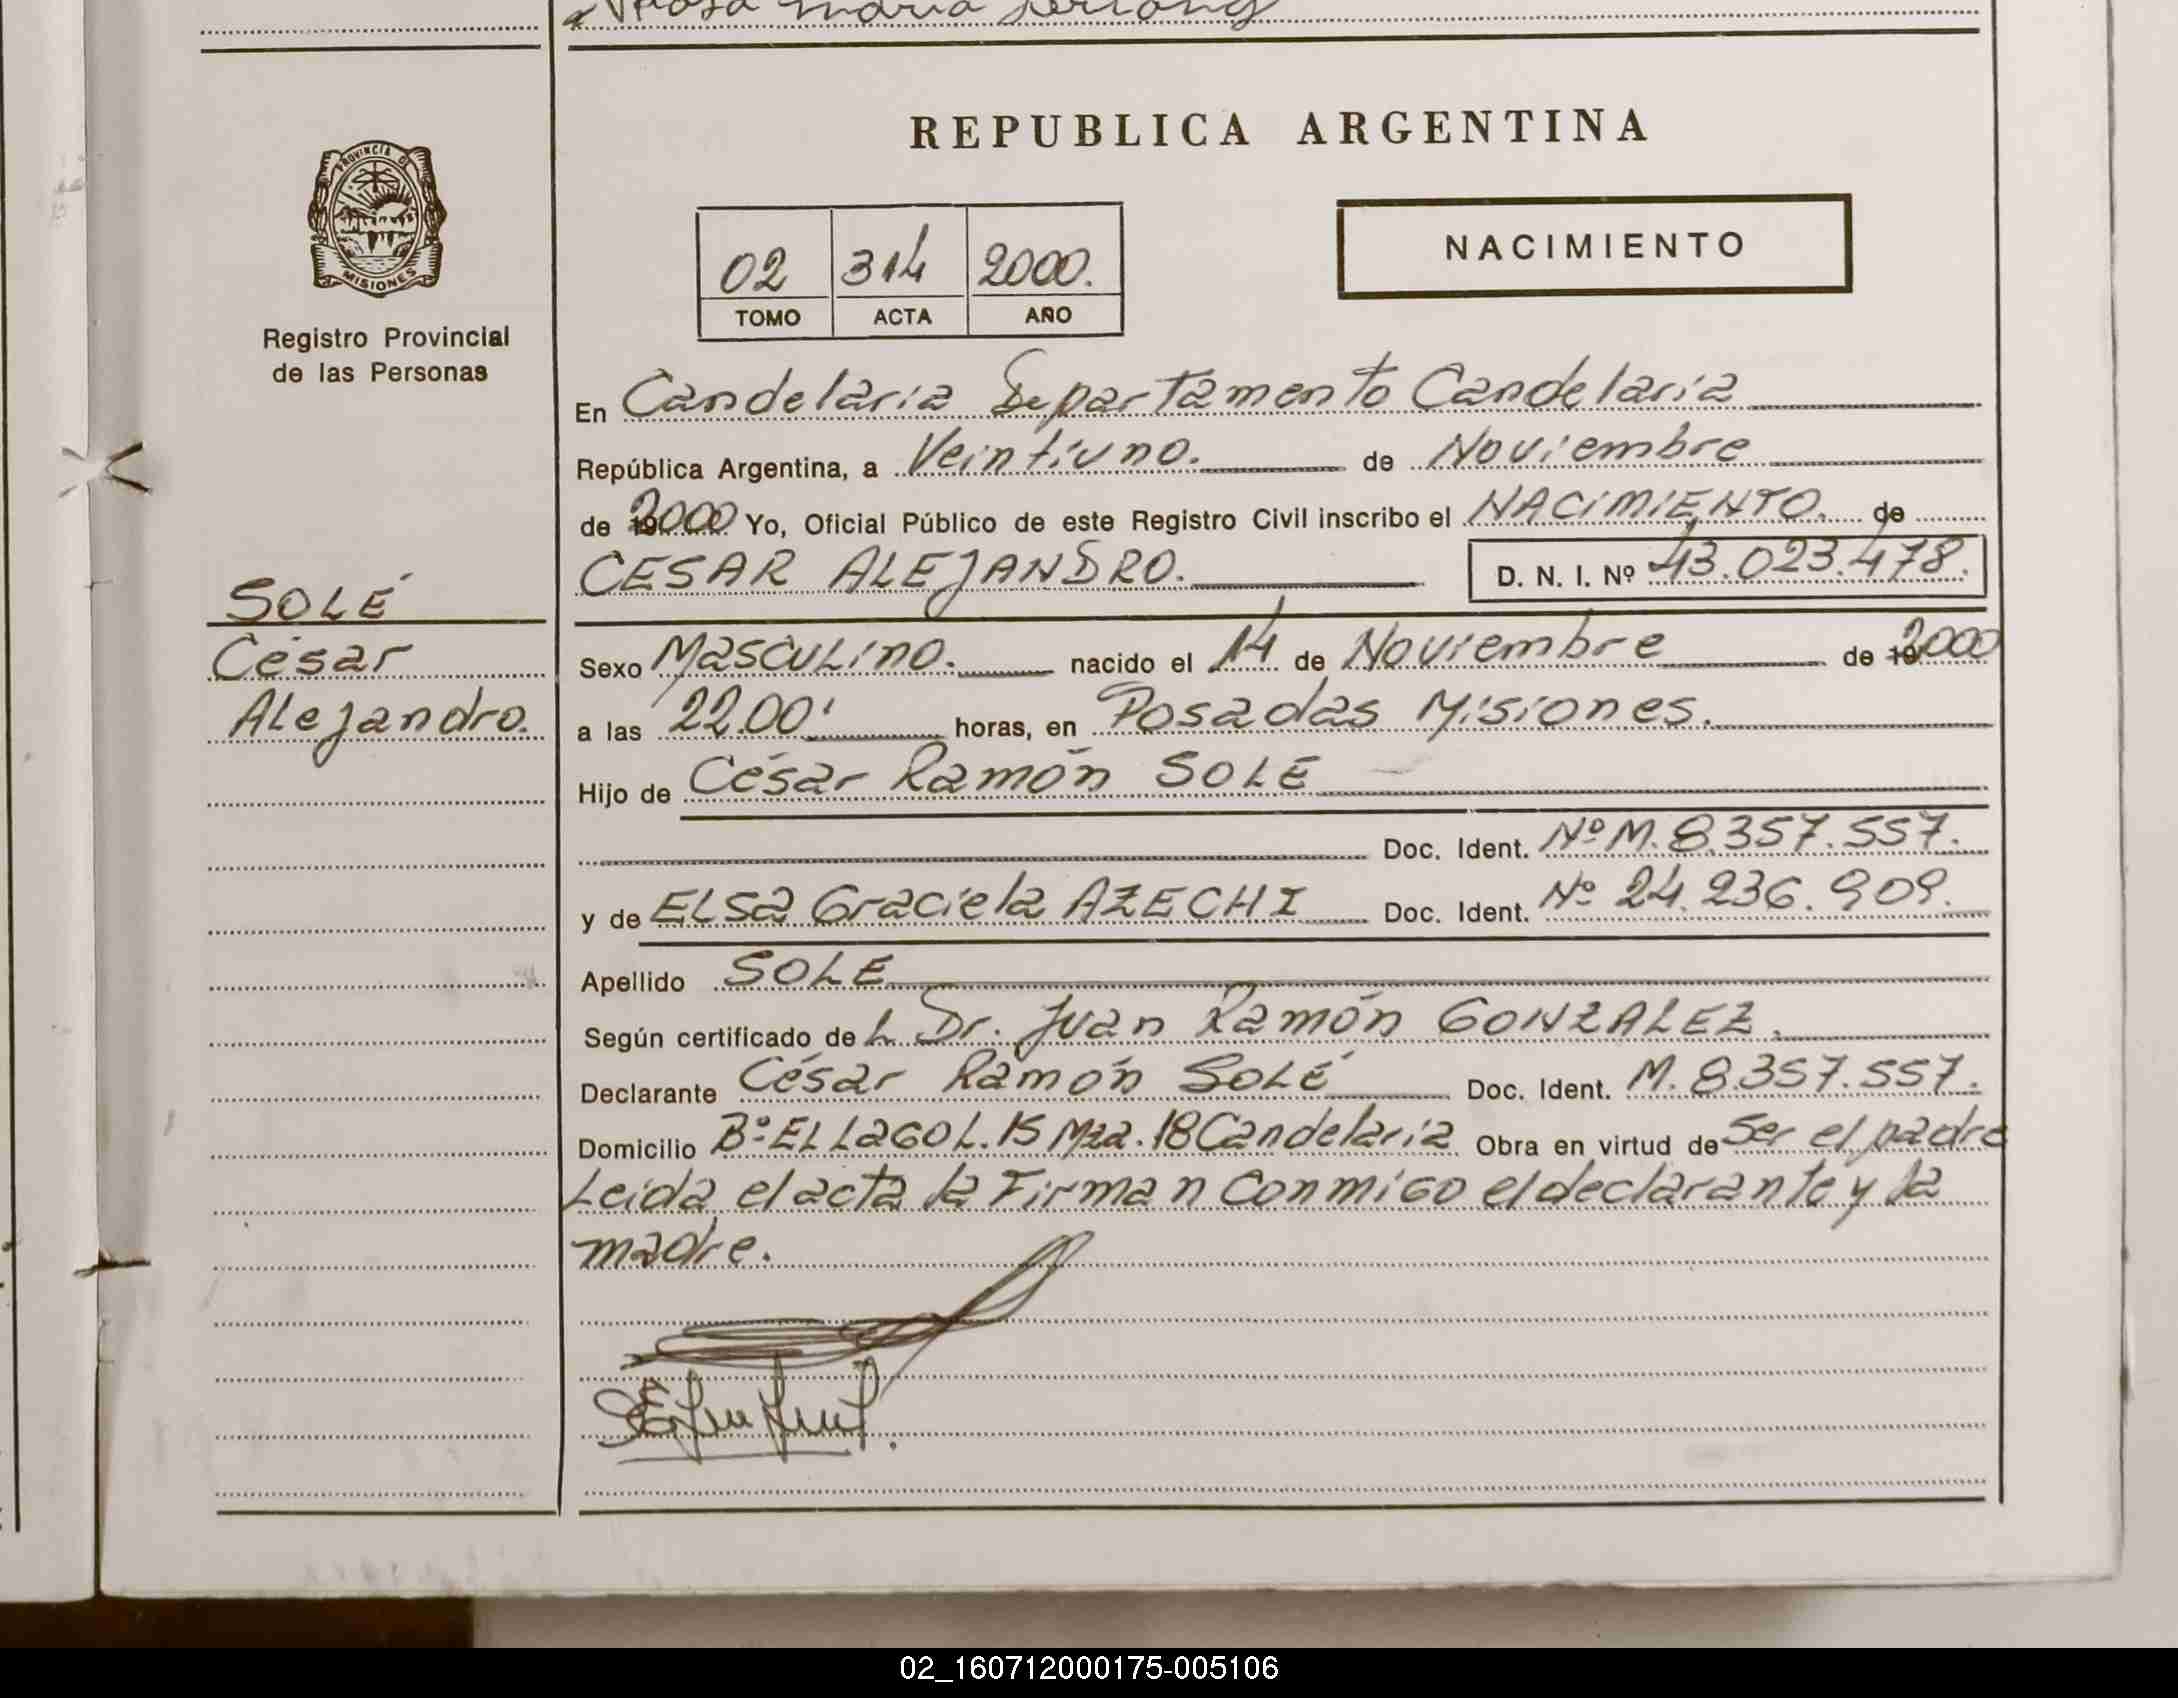 Rosa Maria
REPUBLICA ARGENTINA
PROVINCIA DE MISIONES
Registro Provincial
de las Personas
02 314 2000.
TOMO ACTA AÑO
NACIMIENTO
En Candelaria Departamento Candelaria
República Argentina, a Veintiuno. de Noviembre
de 2000 Yo, Oficial Público de este Registro Civil inscribo el NACIMIENTO. de
CESAR ALEJANDRO. D. N. I. Nº 43.023.478.
SOLÉ
César
Alejandro.
Sexo Masculino. nacido el 14 de Noviembre de 2000
a las 22.00' horas, en Posadas Misiones.
Hijo de César Ramón SOLE
Doc. Ident. Nº M. 8.357.557.
y de ELSA Graciela AZECHI Doc. Ident. Nº 24.236.909.
Apellido SOLE
Según certificado de L Dr. Juan Ramón GONZALEZ.
Declarante César Ramón SOLÉ Doc. Ident. M. 8.357.557.
Domicilio Bº EL LAGO L. 15 Mza. 18 Candelaria Obra en virtud de Ser el padre
Leida el acta la Firman Conmigo el declarante y la
madre.
02_160712000175-005106